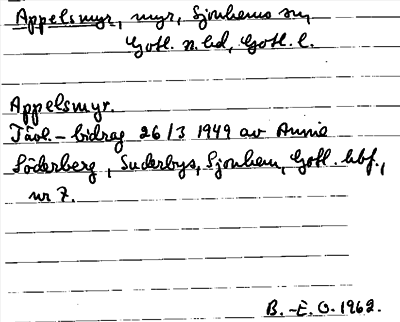 Appelsmyr, myr, Sjonhems sn,
Gotl. n. hd, Gotl. l.
Appelsmyr.
Tävl.-bidrag 26/3 1949 av Annie
Söderberg, Suderbys, Sjonhem, Gotl. hbf.,
nr 7.
B.-E. O. 1962.